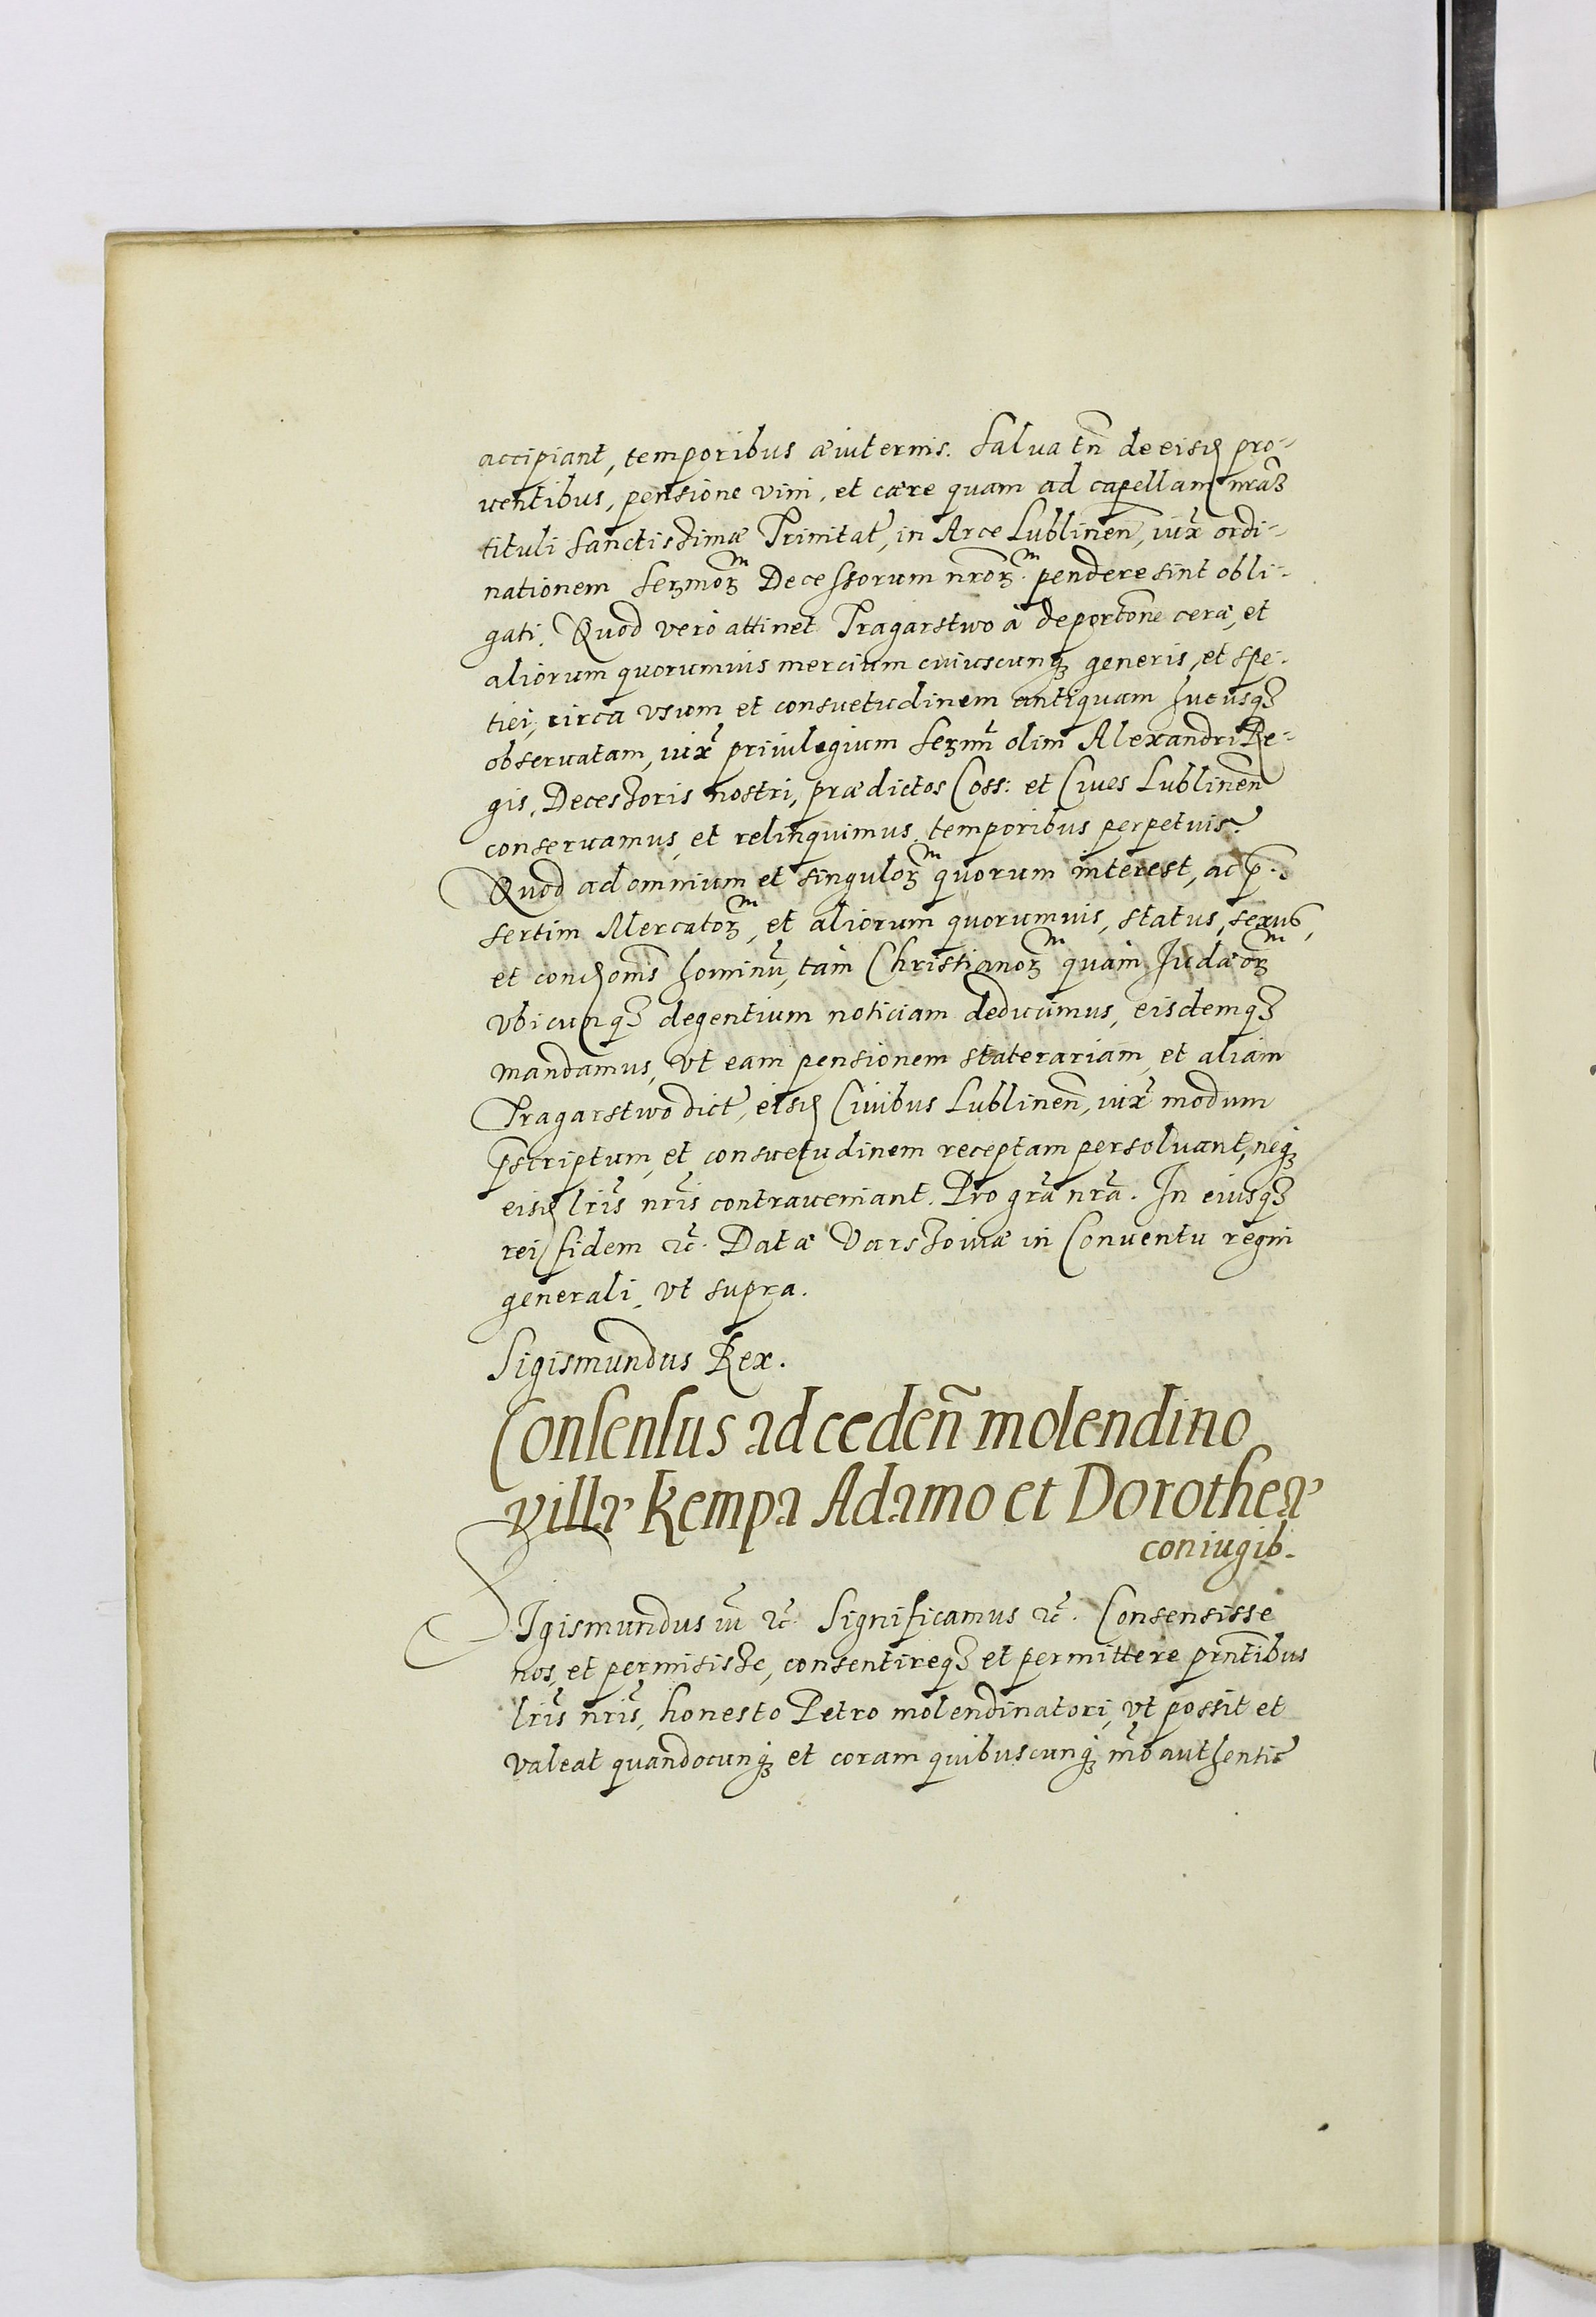 accipiant, temporibus æuiternis. Salua tñ de eisđ pro-
uentibus, pensione vini, et cære quam ad capellam nr̃aȝ
tituli Sanctissimæ Trinitat̛, in Arce Lublineñ, iux̃ ordi-
nationem Serᵐoꝝ Decessorum nr̃oꝝ. pendere sint obli-
gati. Quod vero attinet Tragarstwo à deporto̅ne ceræ, et
aliorum quorumuis mercium cuiuscunqȝ generis, et spe-
tiei, circa vsum et consuetudinem antiquam hucusqȝ
obseruatam, iux̃ priuilegium Serm̃i olim Alexandri Re-
gis, Decessoris nostri, prædictos Coss: et Ciues Lublineñ
conseruamus, et relinquimus temporibus perpetuis.
Quod ad omnium et singuloꝝ quorum interest, ac p̃-
sertim Mercatoꝝ, et aliorum quorumuis, status, sexus,
et condo̅nis hominũ, tam Christianoꝝ quàm Judæoꝝ
vbicunqȝ degentium noticiam deducimus, eisdemqȝ
mandamus, vt eam pensionem staterariam, et aliam
Tragarstwo dict̛, eisđ Ciuibus Lublineñ, iux̃ modum
p̃scriptum, et consuetudinem receptam persoluant, neqȝ
eisđ lr̃is nr̃is contraueniant. Pro gr̃a nr̃a. In eiusqȝ
rei fidem ꝛc̃. Datæ Varssouiæ in Conuentu regni
generali, vt supra.
Sigismundus Rex.
Consensus ad cedeñ molendino
villæ Kempa Adamo et Dorotheæ
coniugib.
Sigismundus iii͂ ꝛc̃. Significamus ꝛc̃. Consensisse
nos, et permisisse, consentireqȝ et permittere pr̃ntibus
lr̃is nr̃is, honesto Petro molendinatori, vt possit et
valeat quandocunqȝ et coram quibuscunqȝ m̃o authentic̛